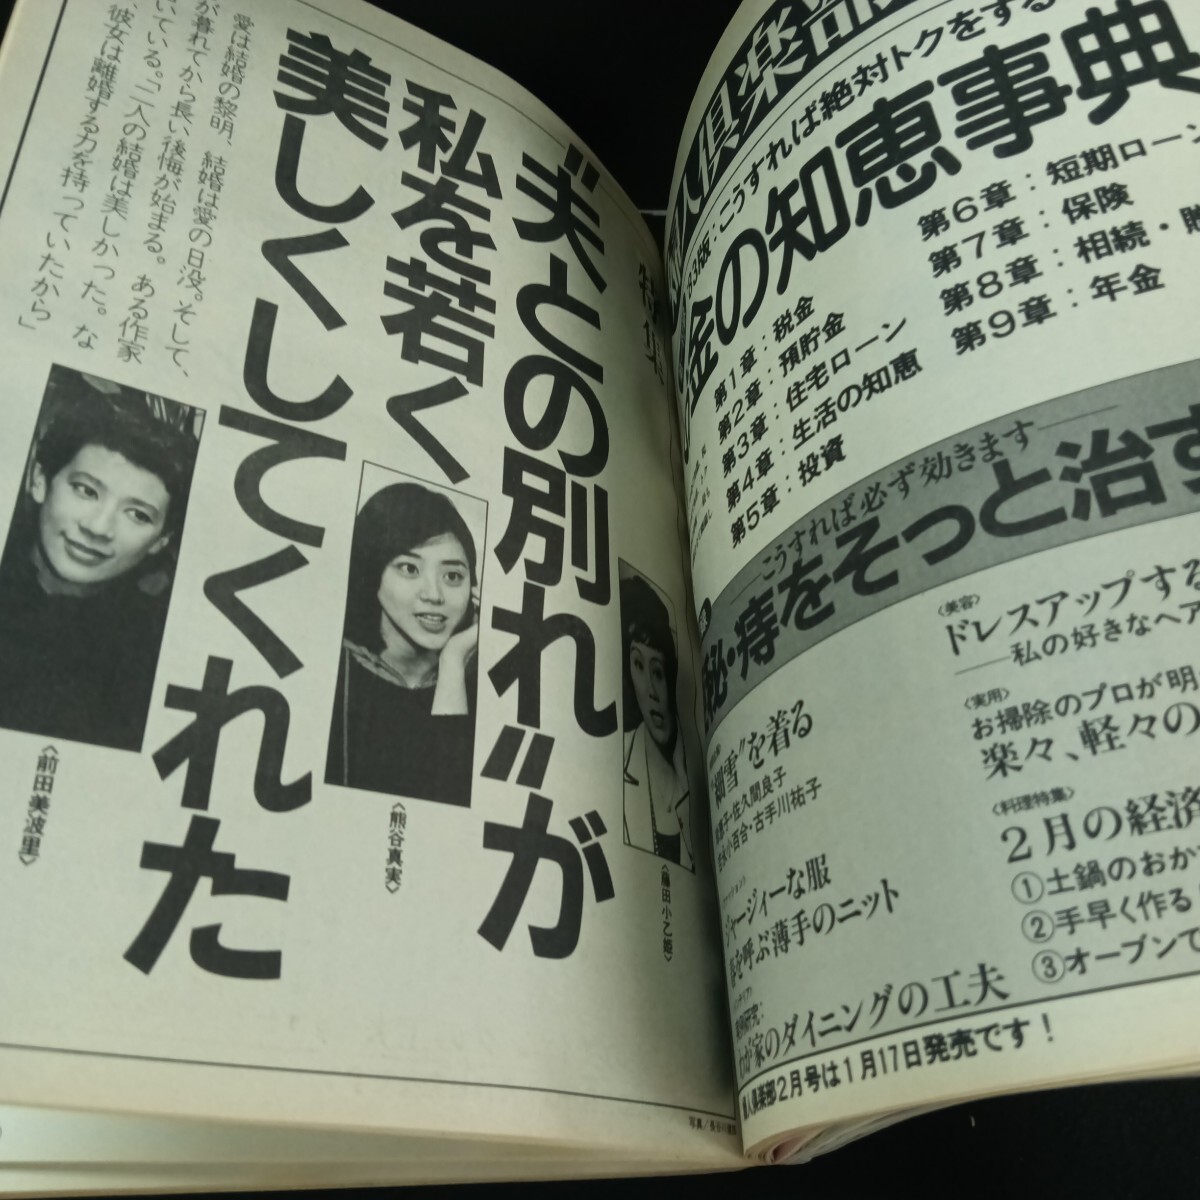 特集
〝夫との別れ〟が
私を若く
美しくしてくれた
愛は結婚の黎明、結婚は愛の日没。そして、
が暮れてから長い後悔が始まる。ある作家
いている。「二人の結婚は美しかった。な
、彼女は離婚する力を持っていたから」
〈藤田小乙姫〉
〈熊谷真実〉
〈前田美波里〉
写真／長谷川
倶楽部
83版：こうすれば絶対トクをする
金の知恵事典
第1章：税金
第2章：預貯金
第3章：住宅ローン
第4章：生活の知恵
第5章：投資
第6章：短期ローン
第7章：保険
第8章：相続・贈
第9章：年金
こうすれば必ず効きます
秘・痔をそっと治す
〝細雪〟を着る
・佐久間良子
小百合・古手川祐子
ジャージィーな服
を呼ぶ薄手のニット
実例研究：
わが家のダイニングの工夫
〈美容〉
ドレスアップする
――私の好きなヘア
〈実用〉
お掃除のプロが明
楽々、軽々の
〈料理特集〉
2月の経済
①土鍋のおか
②手早く作る
③オーブンで
人倶楽部2月号は1月17日発売です！